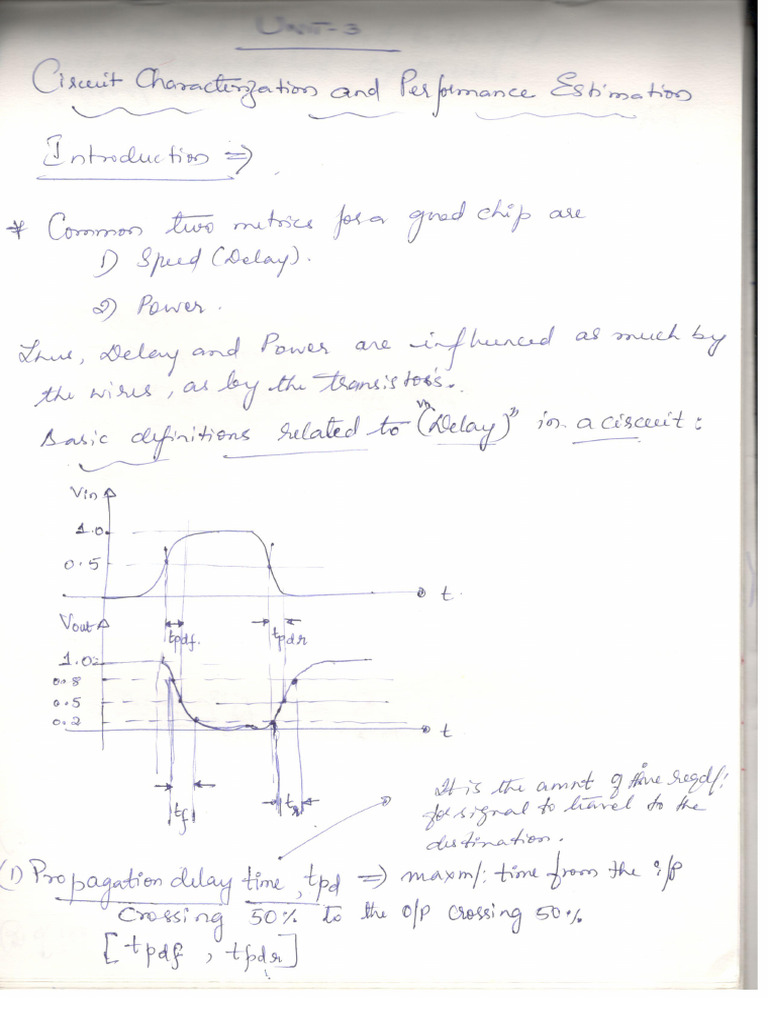 UNIT-3
Circuit Characterization and Performance Estimation
Introduction ⇒
* Common two metrics for a good chip are
1) Speed (Delay).
2) Power.
Thus, Delay and Power are influenced as much by
the wires, as by the transistors.
Basic definitions related to "(Delay)" in a circuit:
Vin
1.0
0.5
t
Vout
tpdf.
tpdr
1.0
0.8
0.5
0.2
t
tf
tr
It is the amnt of time reqd/:
for signal to travel to the
destination.
(1) Propagation delay time, tpd ⇒ maxm/: time from the i/p
crossing 50% to the o/p crossing 50%
[tpdf, tpdr]